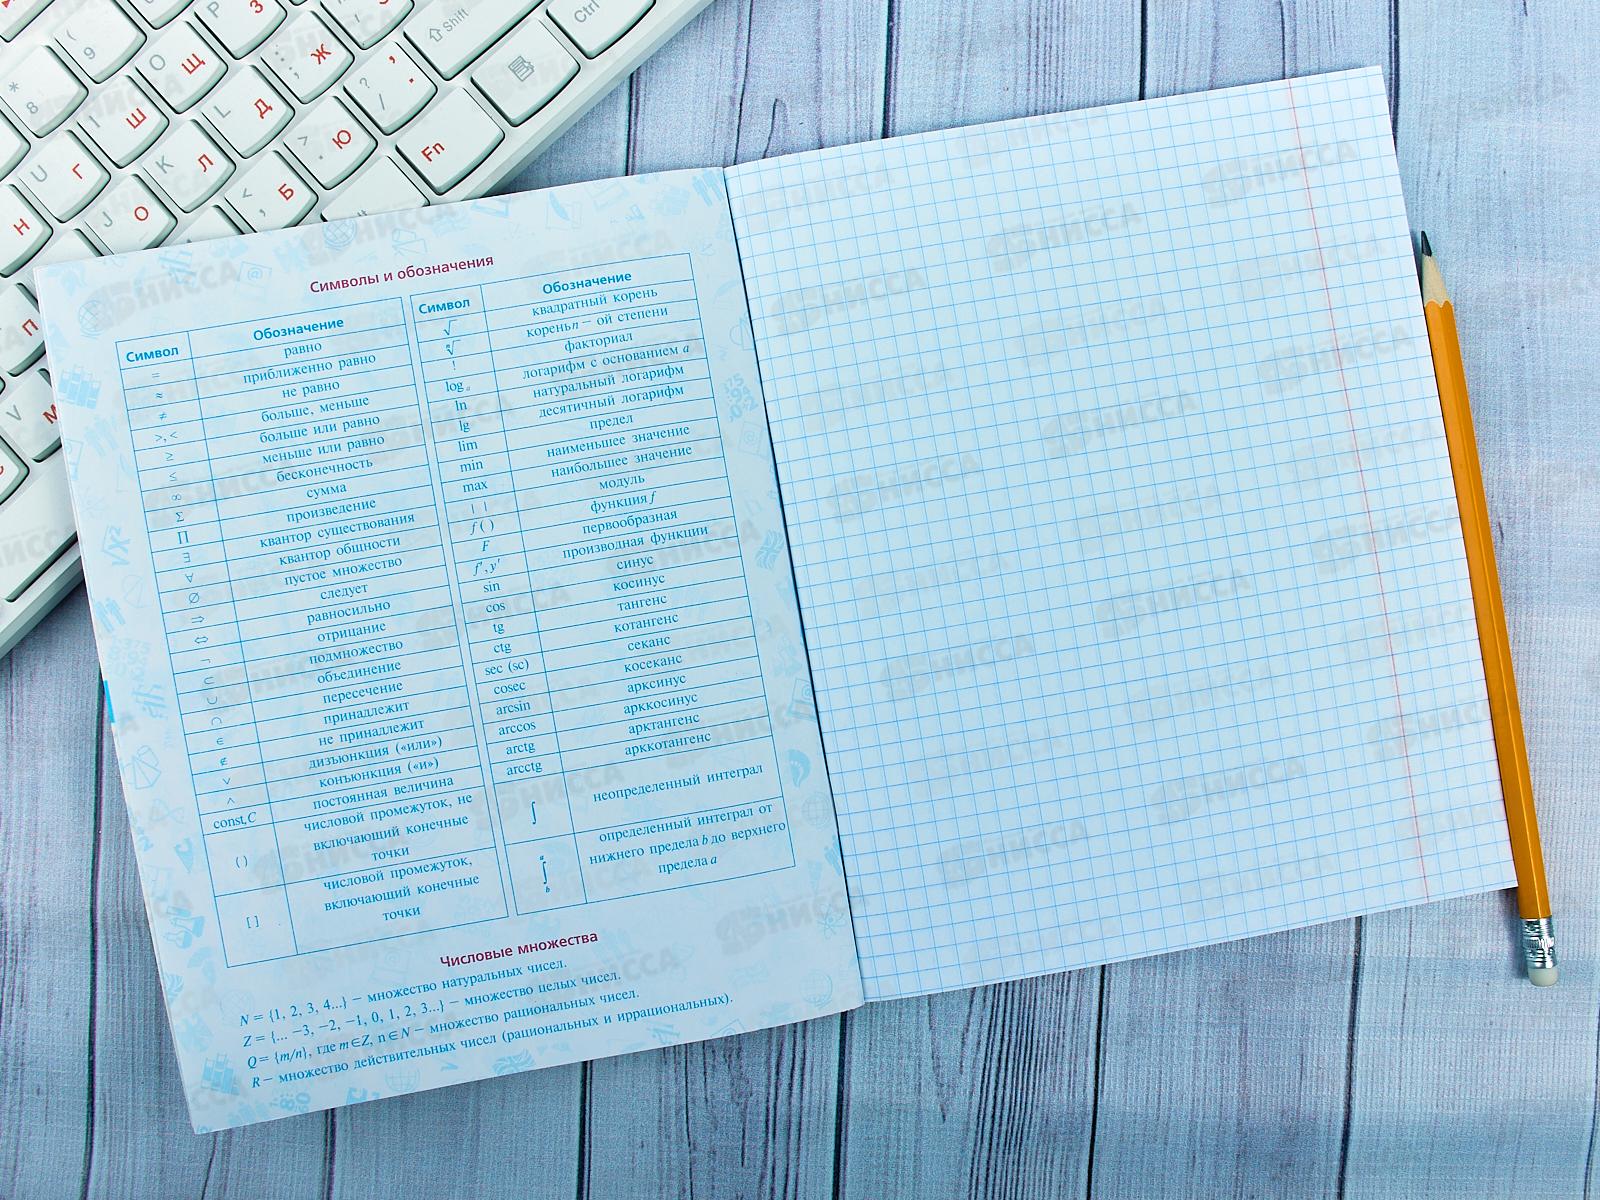 Символы и обозначения
Символ Обозначение
= равно
≈ приближенно равно
≠ не равно
>, < больше, меньше
≥ больше или равно
≤ меньше или равно
∞ бесконечность
Σ сумма
∏ произведение
∃ квантор существования
∀ квантор общности
∅ пустое множество
⇒ следует
⇔ равносильно
¬ отрицание
⊂ подмножество
∪ объединение
∩ пересечение
∈ принадлежит
∉ не принадлежит
∨ дизъюнкция («или»)
∧ конъюнкция («и»)
const, C постоянная величина
( ) числовой промежуток, не
включающий конечные
точки
[ ] числовой промежуток,
включающий конечные
точки
Символ Обозначение
√ квадратный корень
ⁿ√ корень n – ой степени
! факториал
log a логарифм с основанием a
ln натуральный логарифм
lg десятичный логарифм
lim предел
min наименьшее значение
max наибольшее значение
| | модуль
f ( ) функция f
F первообразная
f', y' производная функции
sin синус
cos косинус
tg тангенс
ctg котангенс
sec (sc) секанс
cosec косеканс
arcsin арксинус
arccos арккосинус
arctg арктангенс
arcctg арккотангенс
∫ неопределенный интеграл
a
∫ определенный интеграл от
b нижнего предела b до верхнего
предела a
Числовые множества
N = {1, 2, 3, 4...} – множество натуральных чисел.
Z = {... –3, –2, –1, 0, 1, 2, 3...} – множество целых чисел.
Q = {m/n}, где m∈Z, n∈N – множество рациональных чисел.
R – множество действительных чисел (рациональных и иррациональных).
Shift
Ctrl
Fn
НИССА